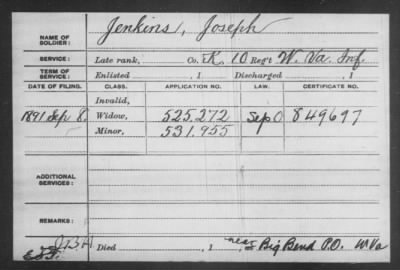 NAME OF SOLDIER: Jenkins, Joseph
SERVICE: Late rank, Co. K, 10 Reg't W. Va. Inf.
TERM OF SERVICE: Enlisted , 1 Discharged , 1
DATE OF FILING. CLASS. APPLICATION NO. LAW. CERTIFICATE NO.
Invalid,
1891 Sep 8. Widow, 525.272 849697
Minor, 531.955
ADDITIONAL SERVICES:
REMARKS:
Died , 1 near Big Bend P.O. W Va